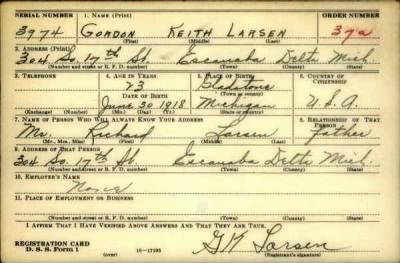 SERIAL NUMBER 1. NAME (Print) ORDER NUMBER
3974 GORDON KEITH LARSEN 37a
(First) (Middle) (Last)
2. ADDRESS (Print)
304 So. 17th St. Escanaba Delta Mich.
(Number and street or R. F. D. number) (Town) (County) (State)
3. TELEPHONE 4. AGE IN YEARS 5. PLACE OF BIRTH 6. COUNTRY OF CITIZENSHIP
23 Gladstone
DATE OF BIRTH (Town or county)
June 30 1918 Michigan U.S.A.
(Exchange) (Number) (Mo.) (Day) (Yr.) (State or country)
7. NAME OF PERSON WHO WILL ALWAYS KNOW YOUR ADDRESS 8. RELATIONSHIP OF THAT PERSON
Mr. Richard Larsen Father
(Mr., Mrs., Miss) (First) (Middle) (Last)
9. ADDRESS OF THAT PERSON
304 So. 17th St. Escanaba Delta Mich.
(Number and street or R. F. D. number) (Town) (County) (State)
10. EMPLOYER'S NAME
None
11. PLACE OF EMPLOYMENT OR BUSINESS
(Number and street or R. F. D. number) (Town) (County) (State)
I AFFIRM THAT I HAVE VERIFIED ABOVE ANSWERS AND THAT THEY ARE TRUE.
REGISTRATION CARD
D. S. S. Form 1 (over) 16—17105 GK Larsen
(Registrant's signature)